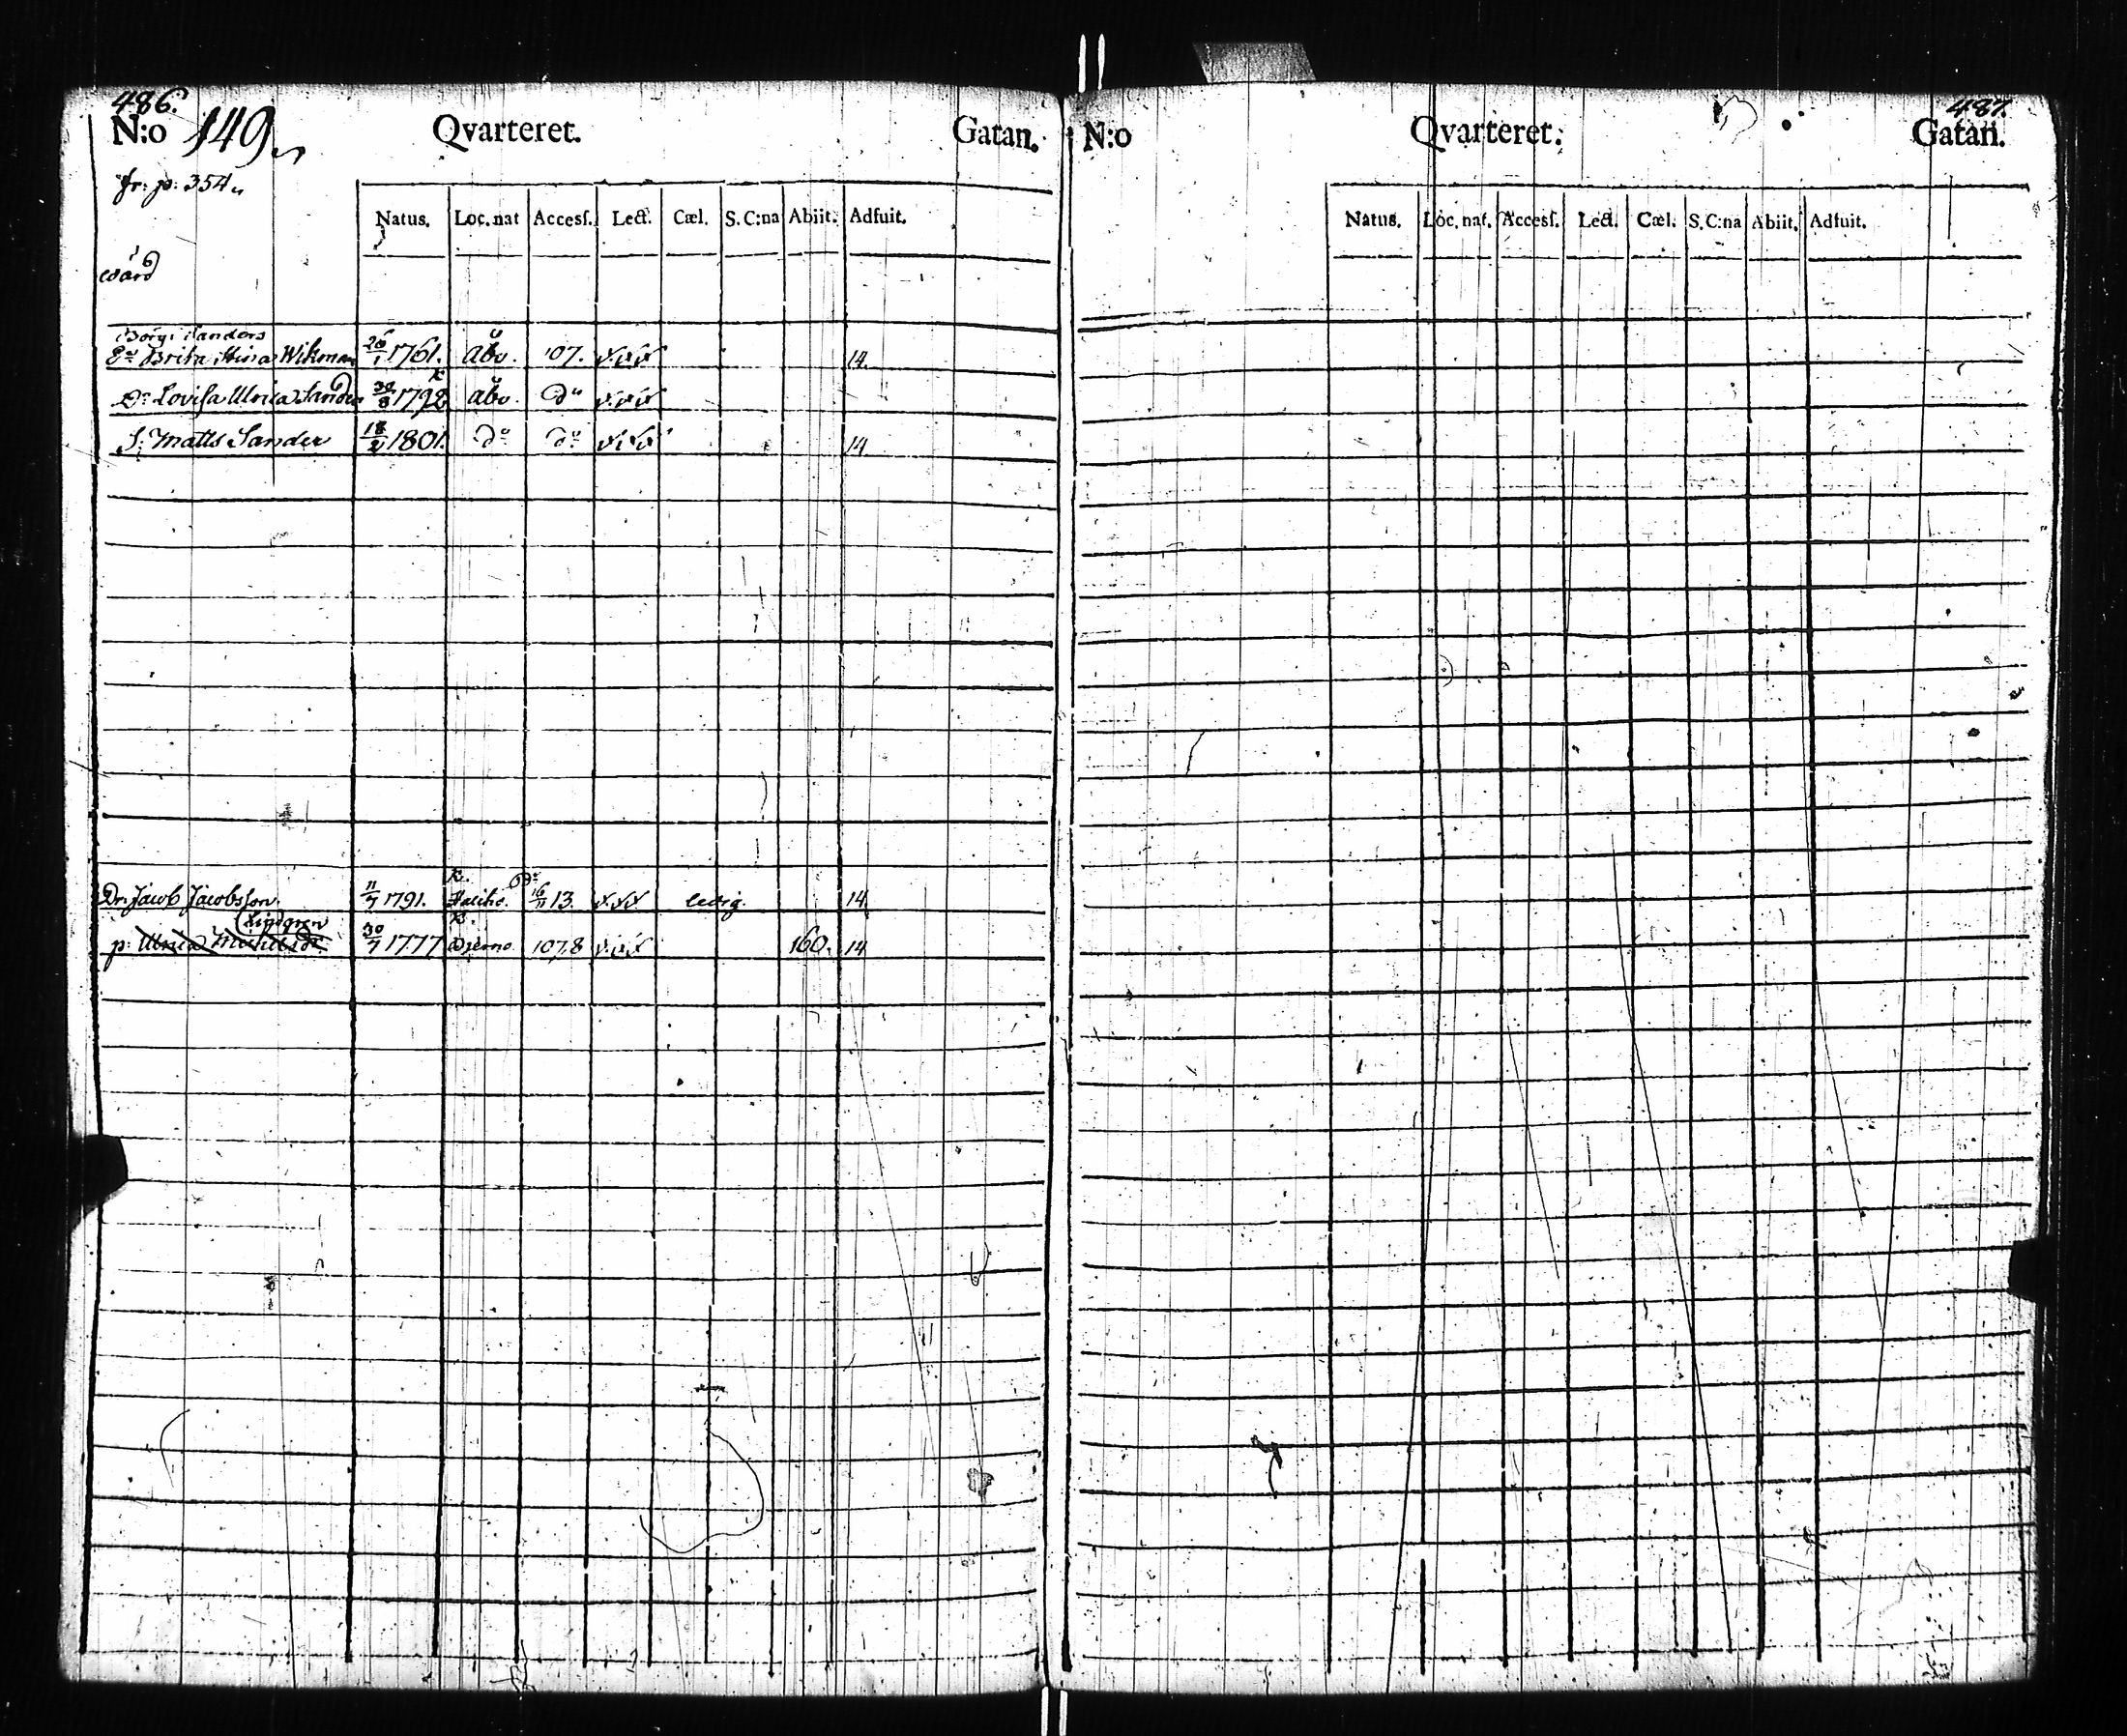 486.
N:o 149. Qvarteret. Gatan.
fr. p: 354.
Natus. Loc. nat Accesſ. Lect. Cæl. S. C:na Abiit. Adfuit.
gård
Borg: Sanders
E:a Brita Stina Wikman 26/1 1761. åbo. 107. 14.
D:r Lovisa Ulrica Sander 30/8 1792 åbo. d:o
S: Matts Sander 1801. d:o d:o 14
Dr. Jacob Jacobsson 11/7 1791. 16/11 13. ledig. 14
Lindgren
p: Ulrica 30/7 1777 107,8 160. 14
487.
N:o Qvarteret. Gatan.
Natus. Loc. nat. Accesſ. Lect. Cæl. S. C:na Abiit. Adfuit.